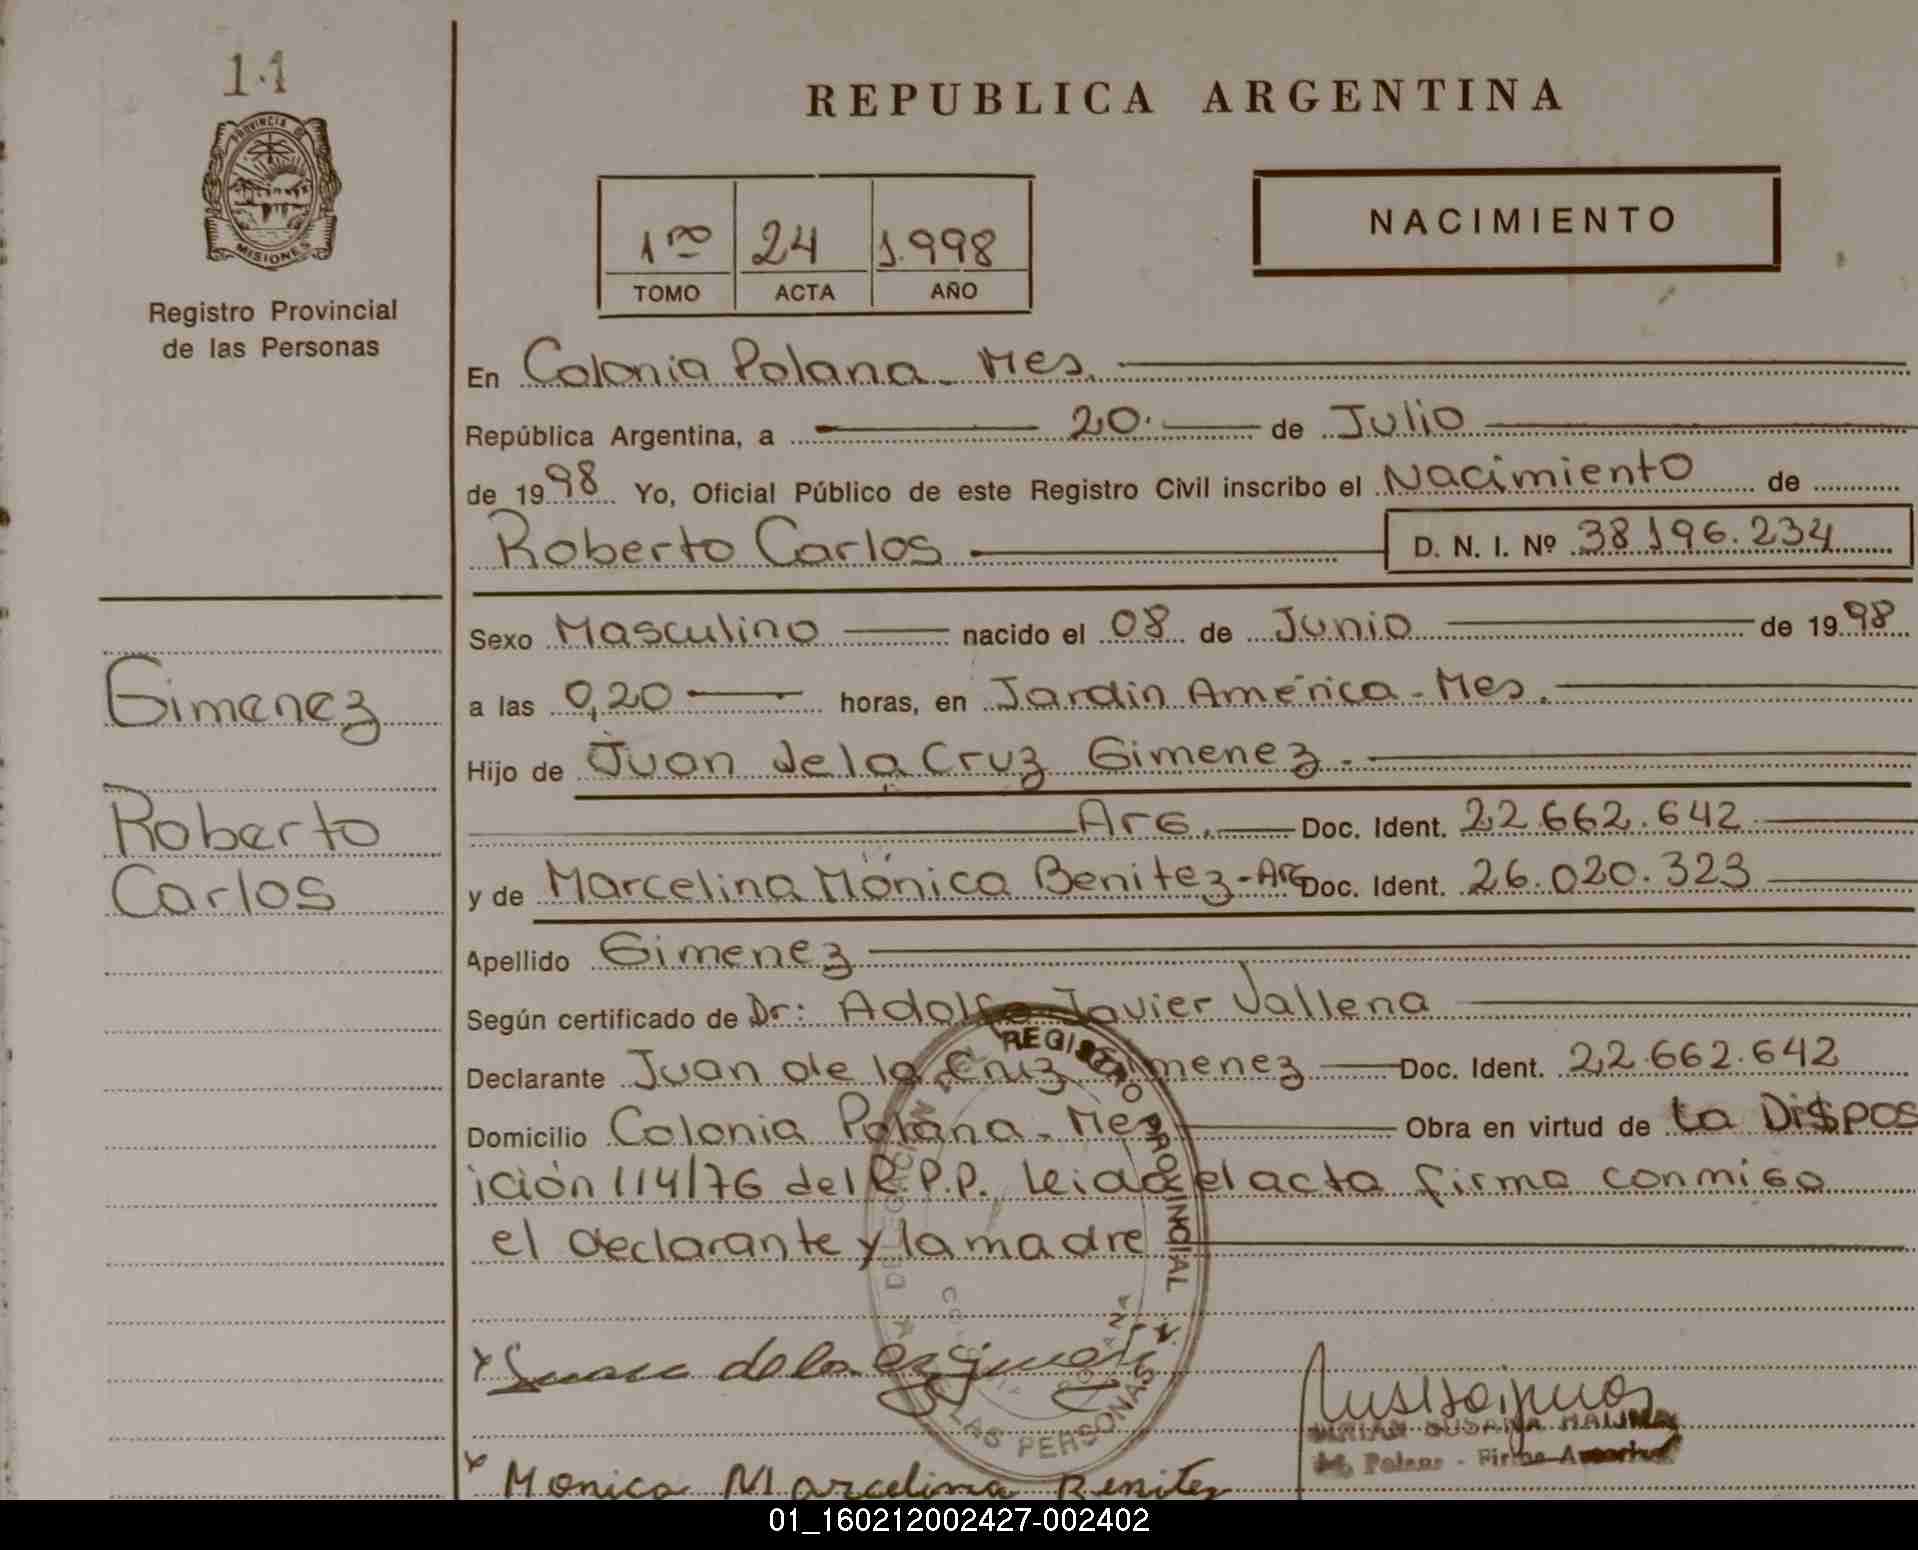 11
PROVINCIA DE
MISIONES
Registro Provincial
de las Personas
Gimenez
Roberto
Carlos
REPUBLICA ARGENTINA
1ro 24 1.998
TOMO ACTA AÑO
NACIMIENTO
En Colonia Polana - Mes.
República Argentina, a 20. de Julio
de 1998 Yo, Oficial Público de este Registro Civil inscribo el Nacimiento de
Roberto Carlos D. N. I. Nº 38196.234
Sexo Masculino nacido el 08 de Junio de 1998
a las 0,20 horas, en Jardin América - Mes.
Hijo de Juan de la Cruz Gimenez.
Arg. Doc. Ident. 22.662.642
y de Marcelina Mónica Benitez - Arg Doc. Ident. 26.020.323
Apellido Gimenez
Según certificado de Dr: Adolfo Javier Vallena
Declarante Juan de la Cruz Gimenez Doc. Ident. 22.662.642
Domicilio Colonia Polana - Mes Obra en virtud de La Dispos
ición 114/76 del R.P.P. Leida el acta firma conmigo
el declarante y la madre
REGISTRO PROVINCIAL
DE LAS PERSONAS
DELEGACION
Monica Marcelina Benitez
SUSANA
Polana - Firma
01_160212002427-002402